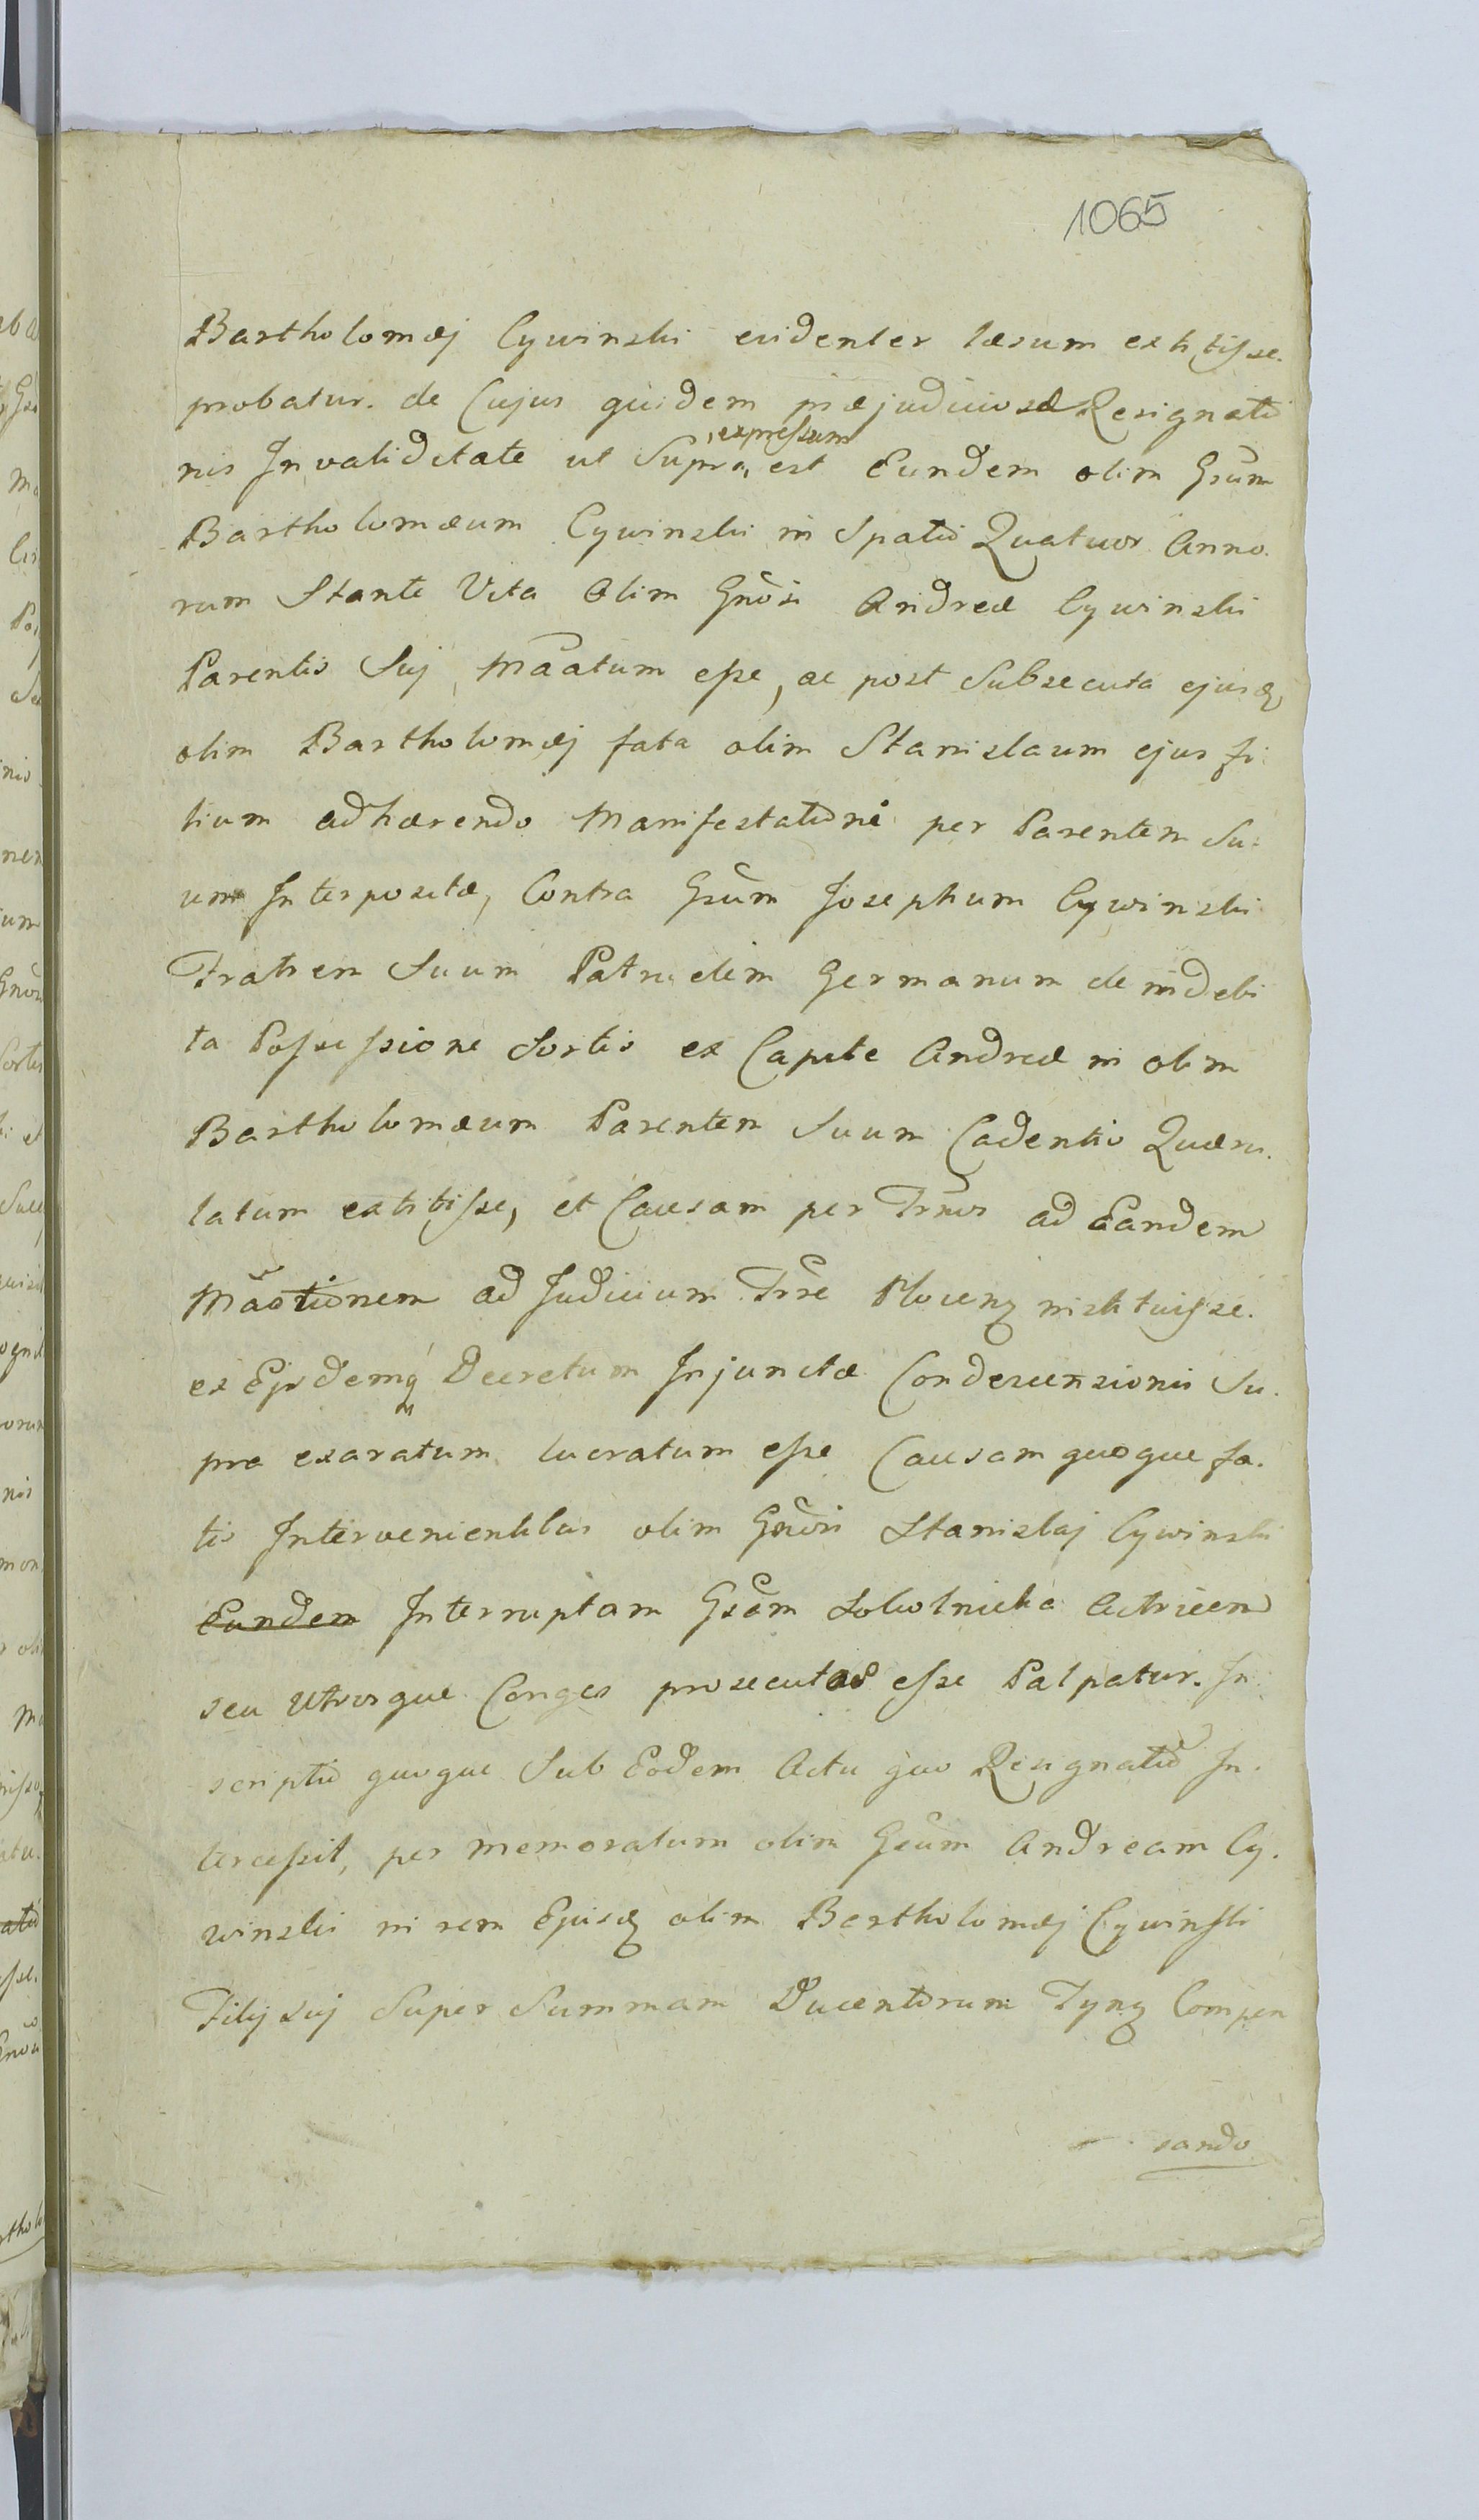 1065
Bartholomæj Cywinski evidenter læsum extitisse.
probatur. de Cujus quidem præjudiciosæ Resignatio
nis Invaliditate ut Supra, expressum est Eundem olim Gsum
Bartholomæum Cywinski in Spatio Quatuor Anno.
rum Stante Vita Olim Gnosi Andreæ Cywinski
Parentis Suj, Maatum esse, ac post Subsecuta ejusd
olim Bartholomæj fata olim Stanislaum ejus fi:
lium adhærendo Manifestationi per Parentem Su:
um Interpositæ, Contra Gsum Josephum Cywinski
Fratrem Suum Patruelem Germanum de indebi
ta Possessione Sortis ex Capite Andreæ in olim
Bartholomæum Parentem Suum Cadentis Quæru.
latum extitisse, et Causam per Trnos ad Eandem
Maotionem ad Judicium Trre Plocenz instituisse.
ex Ejusdemq Decretum Injunctæ Condescensionis Su.
pra exaratum lucratum esse Causam quoque fa.
tis Intervenientibus olim Gnosi Stanislaj Cywinski
Eundem Interruptam Gsam Sokolnicka Actricem
seu Utrosque Conges prosecutos esse Palpatur. In
scriptio quoque Sub Eodem Actu quo Resignatio In.
tercessit, per memoratum olim Gsum Andream Cy.
winski in rem Ejusd olim Bartholomæj Cywinski
Filij suj Super Summam Ducentorum Tynz Compen
sando